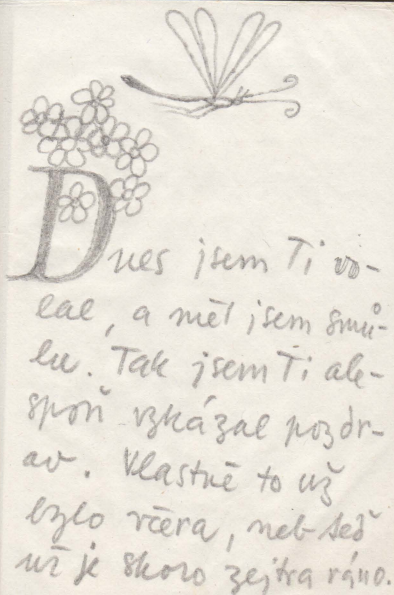 Dnes jsem Ti vo-
lal, a měl jsem smů-
lu. Tak jsem Ti ale-
spoň vzkázal pozdr-
av. Vlastně to už
bylo včera, neb teď
už je skoro zejtra ráno.